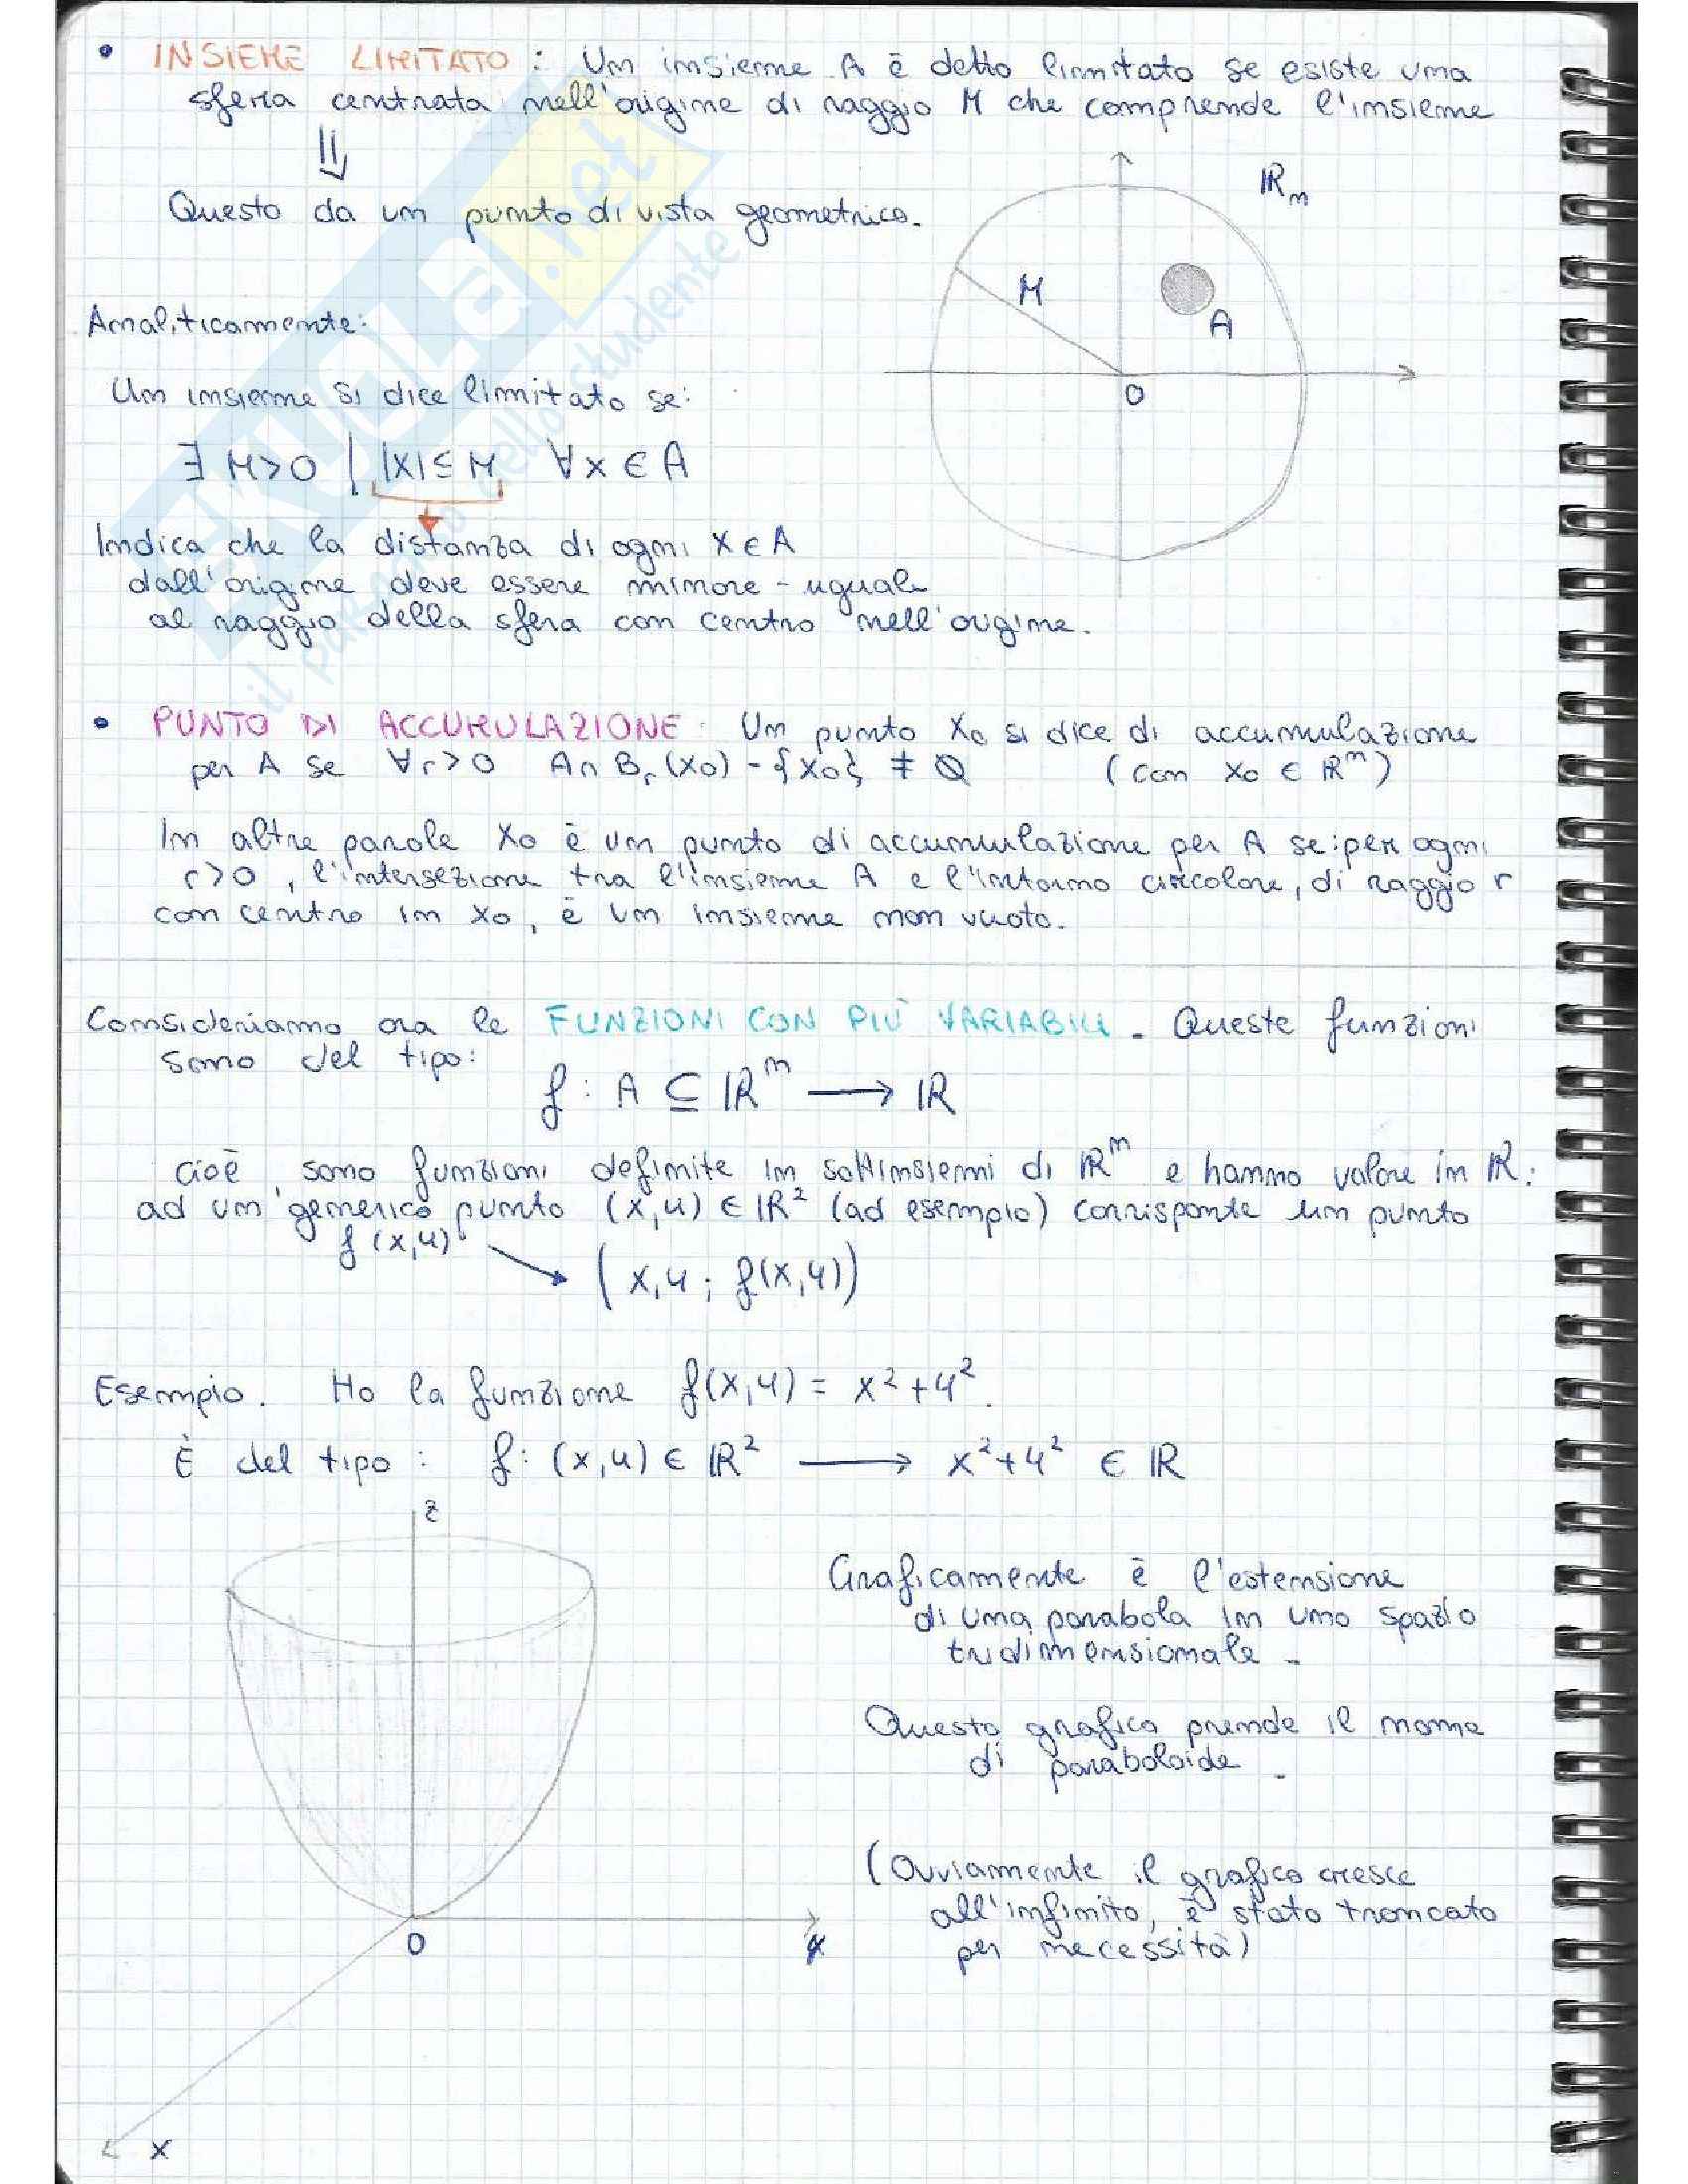 • INSIEME LIMITATO : Un insieme A è detto limitato se esiste una
sfera centrata nell'origine di raggio M che comprende l'insieme
⇓
Questo da un punto di vista geometrico.
ℝn
M
A
O
Analiticamente:
Un insieme si dice limitato se:
∃ M>0 | |x| ≤ M ∀x ∈ A
Indica che la distanza di ogni x ∈ A
dall'origine deve essere minore - uguale
al raggio della sfera con centro nell'origine.
• PUNTO DI ACCUMULAZIONE : Un punto x₀ si dice di accumulazione
per A se ∀r>0 A∩Br(x₀) - {x₀} ≠ ∅ (con x₀ ∈ ℝⁿ)
In altre parole x₀ è un punto di accumulazione per A se: per ogni
r>0, l'intersezione tra l'insieme A e l'intorno circolare, di raggio r
con centro in x₀, è un insieme non vuoto.
Consideriamo ora le FUNZIONI CON PIÙ VARIABILI. Queste funzioni
sono del tipo:
f : A ⊆ ℝⁿ ⟶ ℝ
cioè, sono funzioni definite in sottinsiemi di ℝⁿ e hanno valore in ℝ:
ad un generico punto (x,y) ∈ ℝ² (ad esempio) corrisponde un punto
f(x,y) → (x,y ; f(x,y))
Esempio. Ho la funzione f(x,y) = x²+y².
È del tipo : f: (x,y) ∈ ℝ² ⟶ x²+y² ∈ ℝ
z
Graficamente è l'estensione
di una parabola in uno spazio
tridimensionale.
Questo grafico prende il nome
di paraboloide.
(Ovviamente il grafico cresce
all'infinito, è stato troncato
per necessità)
O
y
x
SKUOLA.net
il paradiso dello studente